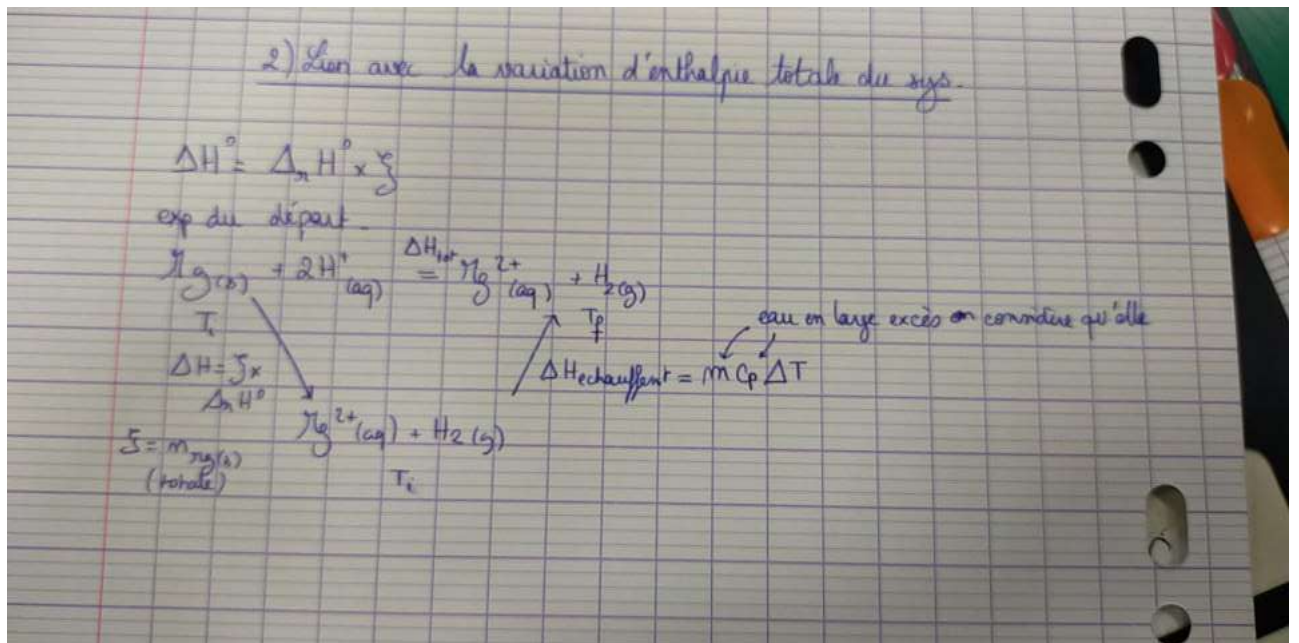 2) Lien avec la variation d'enthalpie totale du sys.
ΔH° = ΔrH° × ξ
exp du départ.
Mg(s) + 2H⁺(aq) =^{ΔHtot} Mg²⁺(aq) + H2(g)
Ti
Tf
eau en large excès on considère qu'elle
ΔH = ξ ×
ΔrH°
ΔHechauffent = m Cp ΔT
Mg²⁺(aq) + H2(g)
ξ = n Mg(s)
(totale)
Ti